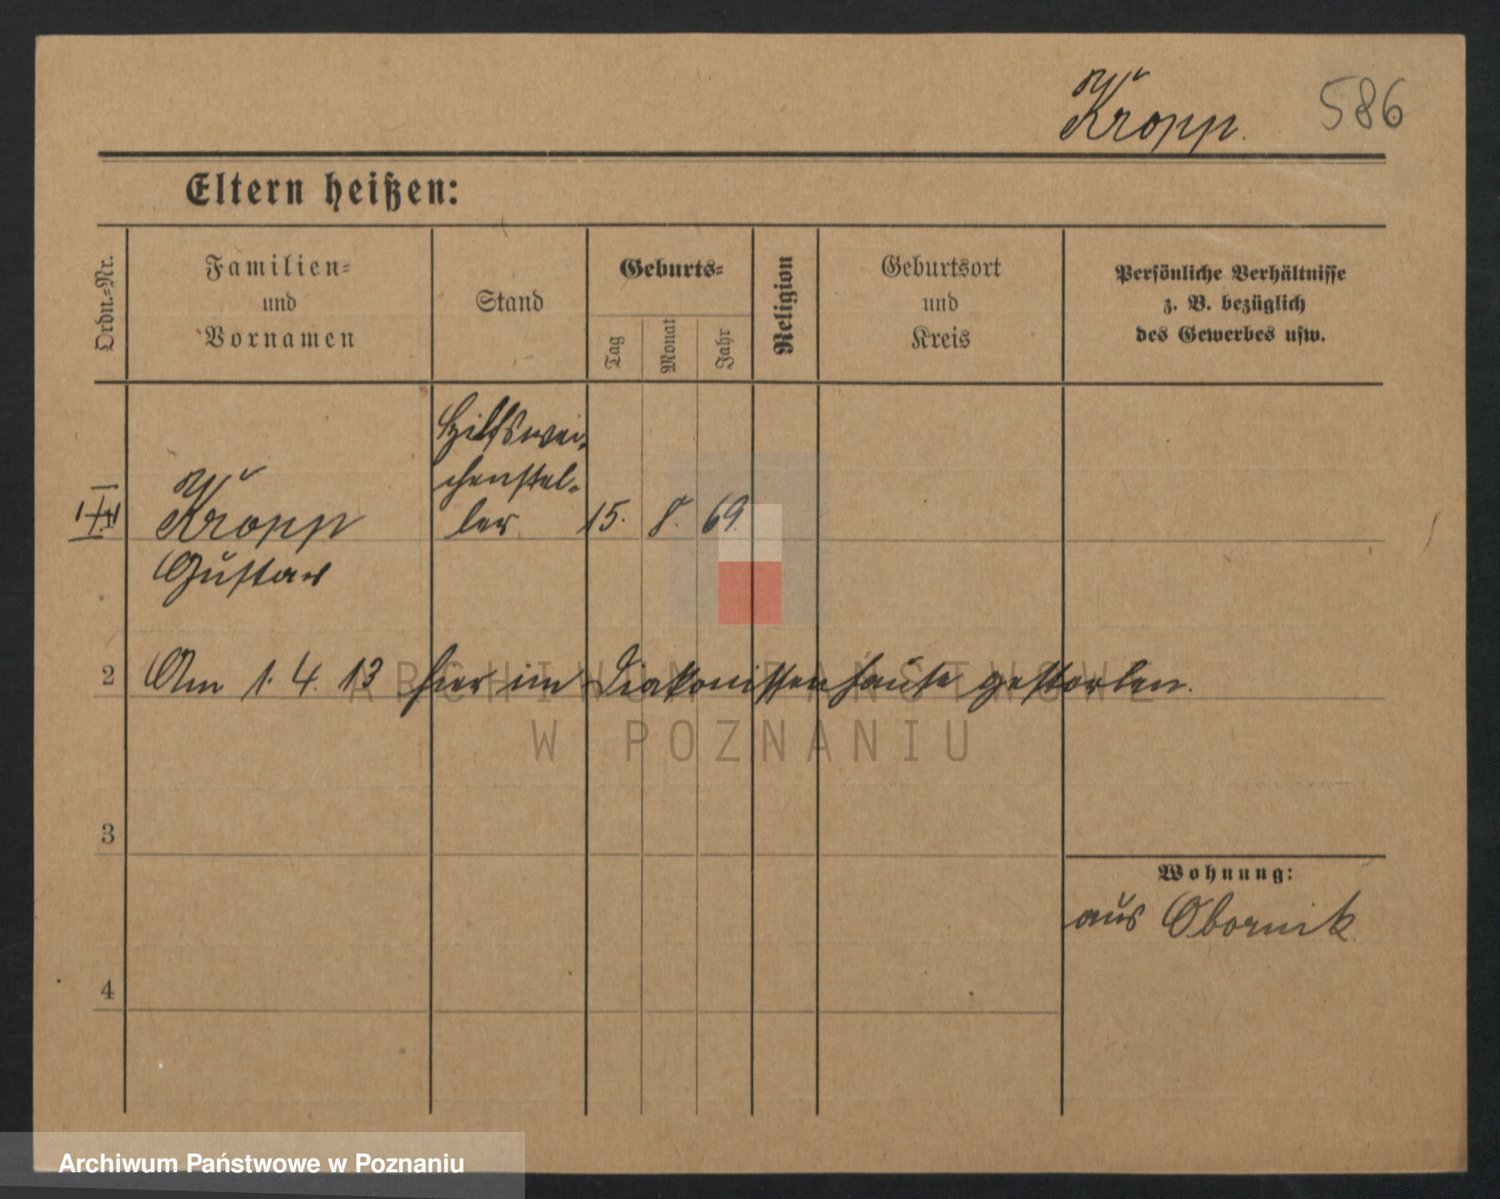 Kropp.
586
Eltern heißen:
Ordn.-Nr.
Familien-
und
Vornamen
Stand
Geburts-
Tag
Monat
Jahr
Religion
Geburtsort
und
Kreis
Persönliche Verhältnisse
z. B. bezüglich
des Gewerbes usw.
Hilfswei-
chenstel-
ler
Kropp
15. 8. 69.
Gustav
2
Am 1. 4. 13 hier im Diakonissenhause gestorben.
ARCHIWUM PAŃSTWOWE
W POZNANIU
3
Wohnung:
aus Obornik
4
Archiwum Państwowe w Poznaniu